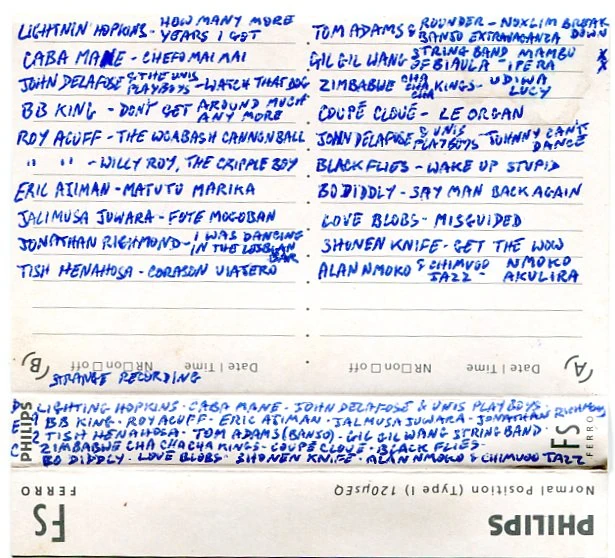 LIGHTNIN' HOPKINS - HOW MANY MORE YEARS I GOT
CABA MANE - CHEFO MAI MAI
JOHN DELAFOSE & THE UNIS PLAYBOYS - WATCH THAT DOG
BB KING - DON'T GET AROUND MUCH ANY MORE
ROY ACUFF - THE WOABASH CANNONBALL
" " - WILLY ROY, THE CRIPPLE BOY
ERIC AJIMAN - MATUTU MARIKA
JALIMUSA JUWARA - FOTE MOGOBAN
JONATHAN RICHMOND - I WAS DANCING IN THE LESBIAN BAR
TISH HENAHOSA - CORASON VIAJERO
TOM ADAMS & ROUNDER BANJO EXTRAVAGANZA - NUXLIM BREAK DOWN
GIL GIL WANG STRING BAND OF BIAULA - MAMBU IPERA
ZIMBABWE CHA CHA CHA KINGS - UDIWA LUCY
COUPÉ CLOUÉ - LE ORGAN
JOHN DELAFOSE & UNIS PLAYBOYS - JOHNNY CAN'T DANCE
BLACK FLIES - WAKE UP STUPID
BO DIDDLY - SAY MAN BACK AGAIN
LOVE BLOBS - MISGUIDED
SHONEN KNIFE - GET THE WOW
ALAN NMOKO & CHIMVUO JAZZ - NMOKO AKULIRA
B Date | Time NR on off
A Date | Time NR on off
STRANGE RECORDING
PHILIPS
LIGHTING HOPKINS · CABA MANE · JOHN DELAFOSE & UNIS PLAYBOYS
BB KING · ROY ACUFF · ERIC AJIMAN · JALMUSA JUWARA · JONATHAN RICHMOND
TISH HENAHOSA · TOM ADAMS (BANJO) · GIL GIL WANG STRING BAND
ZIMBABWE CHA CHA CHA KINGS · COUPÉ CLOUÉ · BLACK FLIES
BO DIDDLY · LOVE BLOBS · SHONEN KNIFE · ALAN NMOKO & CHIMVUO JAZZ
FS FERRO
FS FERRO
Normal Position (Type I) 120µsEQ
PHILIPS